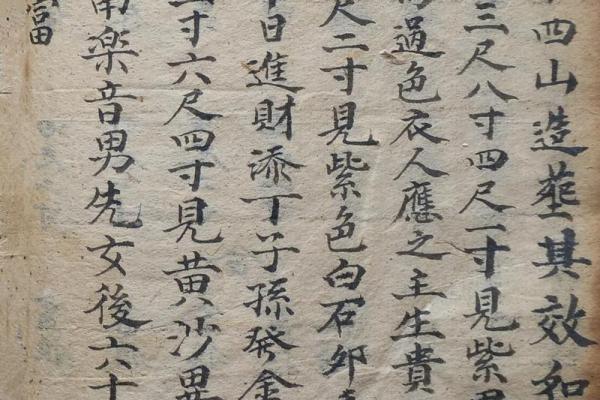 四山造塟其效如
三尺八寸四尺一寸見紫
過色衣人應之主生貴
尺二寸見紫色白石卯
日進財添丁子孫發金
寸六尺四寸見黄沙異
南楽音男先女後六十
富